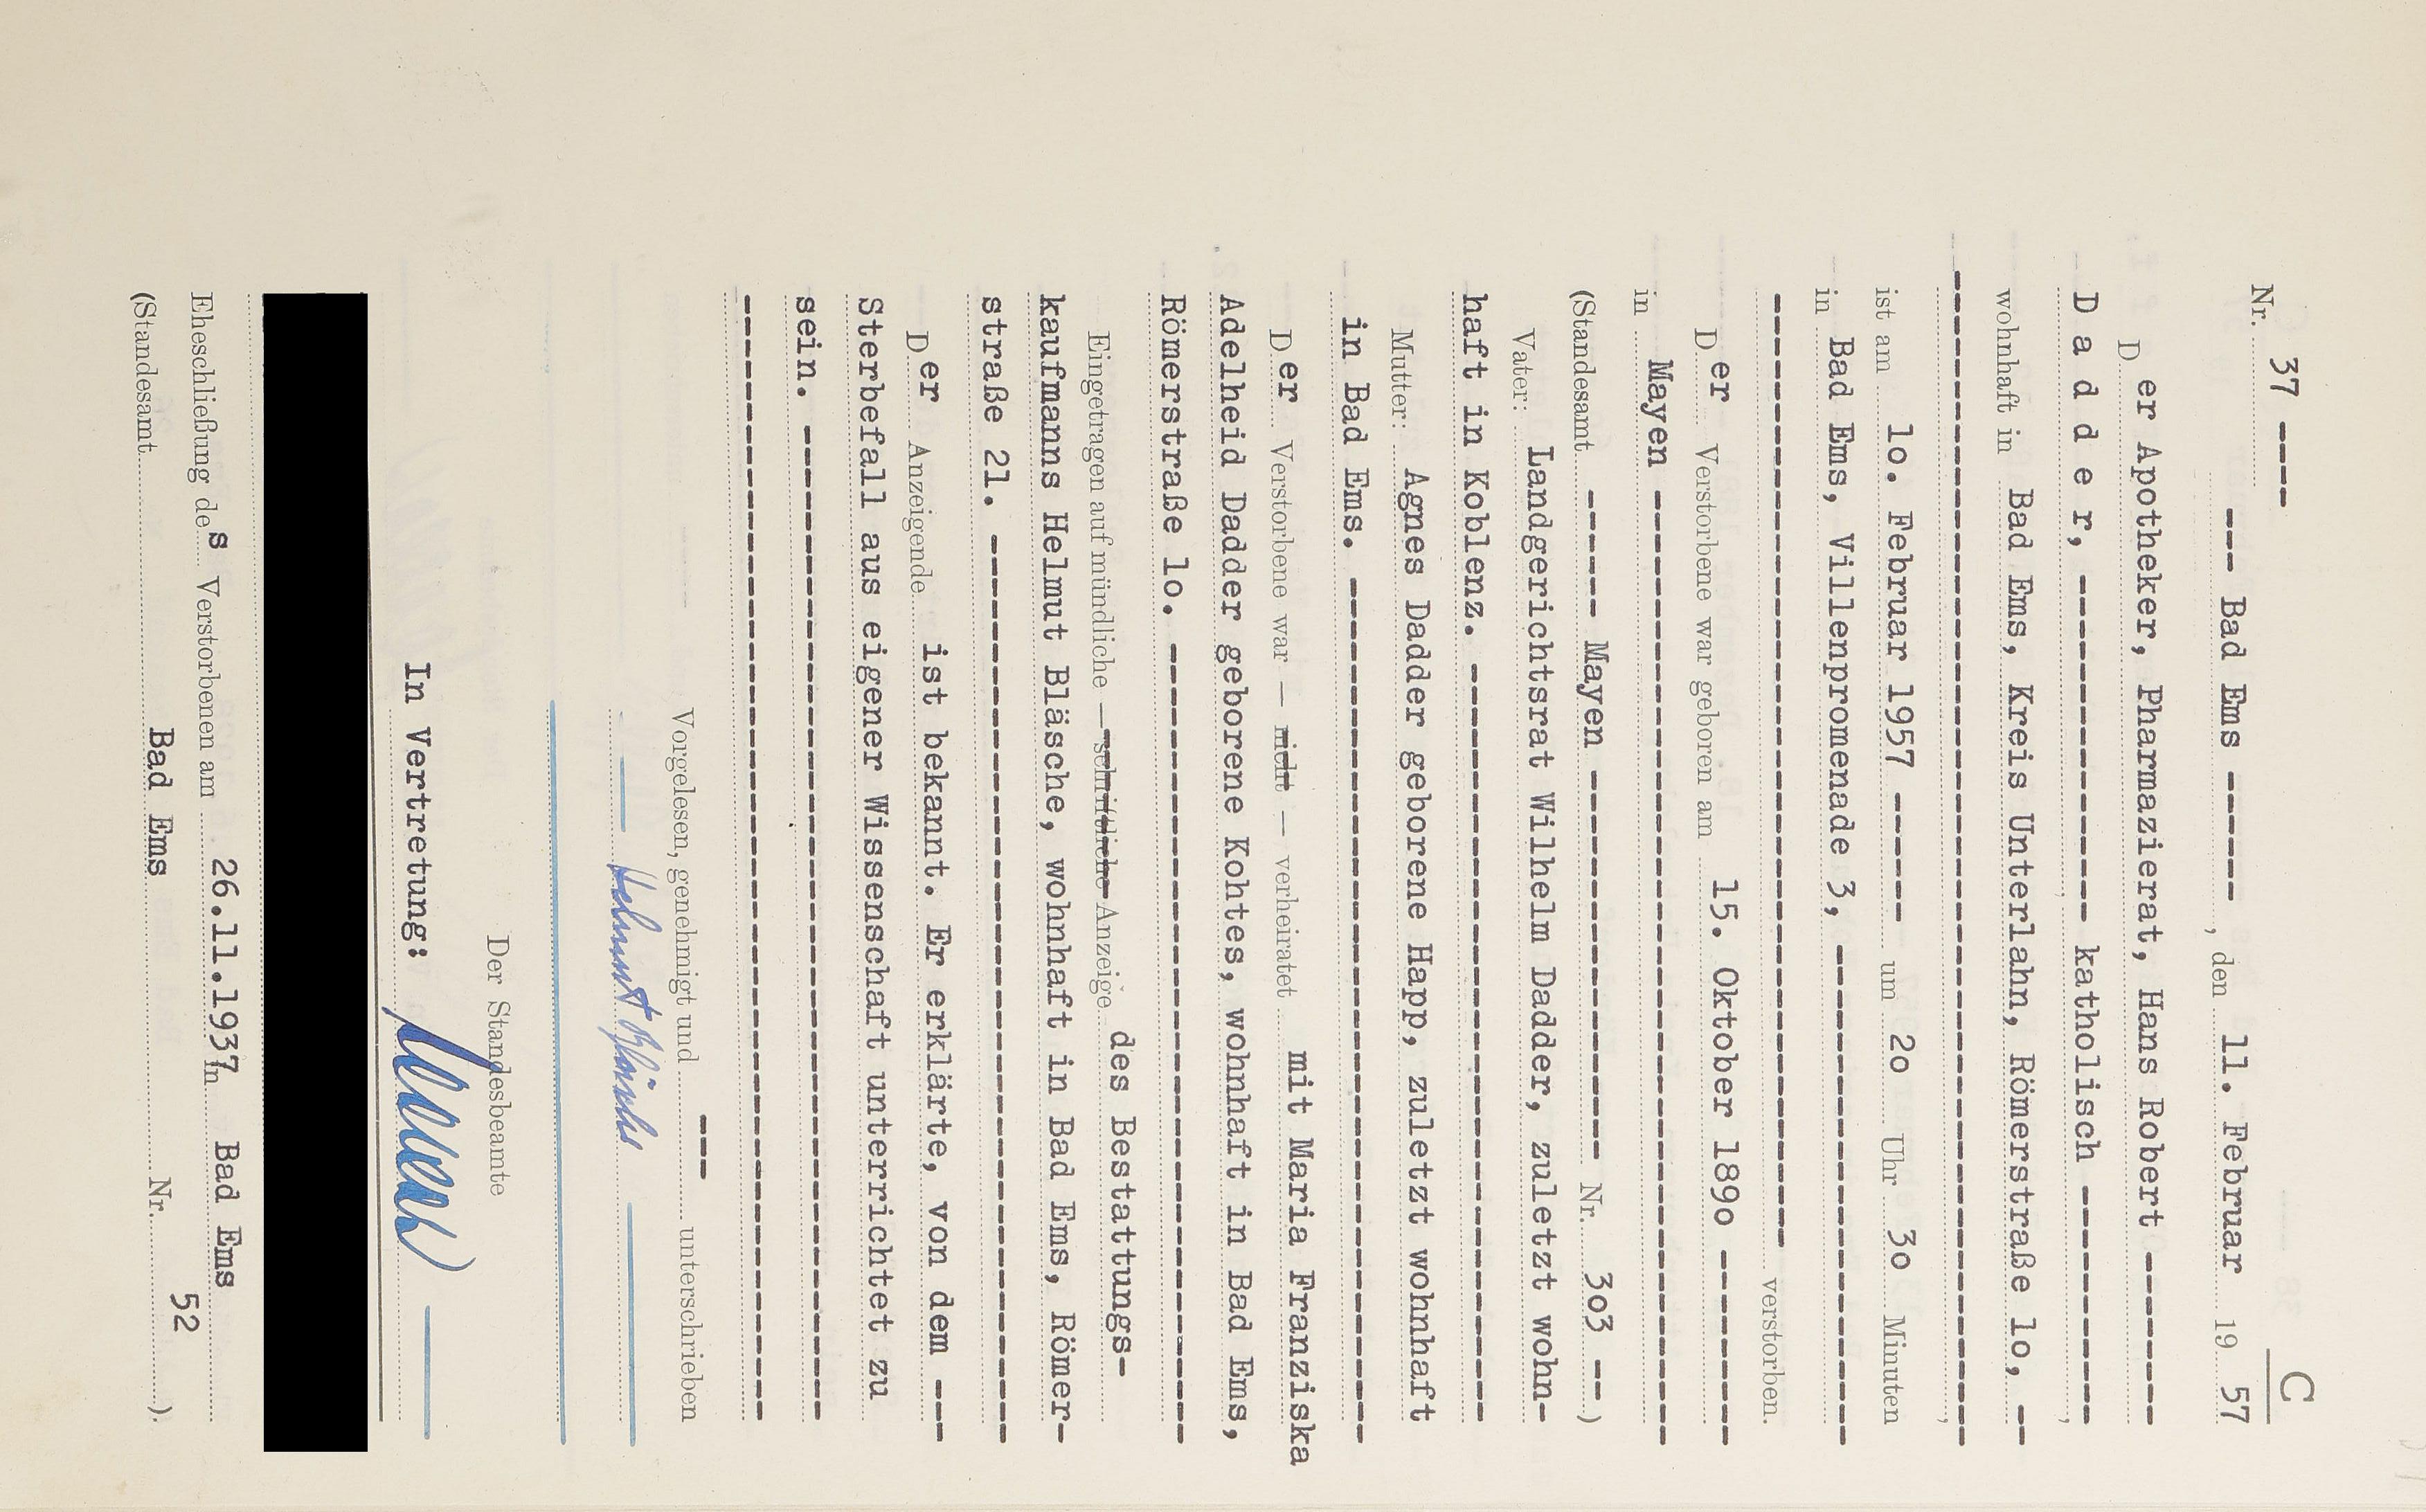 C
Nr. 37 ----
--- Bad Ems ------, den 11. Februar 19 57
Der Apotheker, Pharmazierat, Hans Robert -------
D a d d e r, --------------- katholisch ----------,
wohnhaft in Bad Ems, Kreis Unterlahn, Römerstraße lo, --
ist am lo. Februar 1957 ------ um 2o Uhr 3o Minuten
in Bad Ems, Villenpromenade 3, ----------------------
verstorben.
Der Verstorbene war geboren am 15. Oktober 189o ---------
in Mayen ------------------------------------------
(Standesamt ------ Mayen ----------------- Nr. 3o3 --)
Vater: Landgerichtsrat Wilhelm Dadder, zuletzt wohn-
haft in Koblenz. ---------------------------------
Mutter: Agnes Dadder geborene Happ, zuletzt wohnhaft
in Bad Ems. --------------------------------------
Der Verstorbene war — nicht — verheiratet mit Maria Franziska
Adelheid Dadder geborene Kohtes, wohnhaft in Bad Ems,
Römerstraße lo. -----------------------------------
Eingetragen auf mündliche — schriftliche — Anzeige des Bestattungs-
kaufmanns Helmut Bläsche, wohnhaft in Bad Ems, Römer-
straße 21. ----------------------------------------
Der Anzeigende ist bekannt. Er erklärte, von dem ---
Sterbefall aus eigener Wissenschaft unterrichtet zu
sein. ---------------------------------------------
Vorgelesen, genehmigt und --- unterschrieben
Helmut Bläsche
Der Standesbeamte
In Vertretung:
Eheschließung des Verstorbenen am 26.11.1937 in Bad Ems
(Standesamt Bad Ems Nr. 52 ).